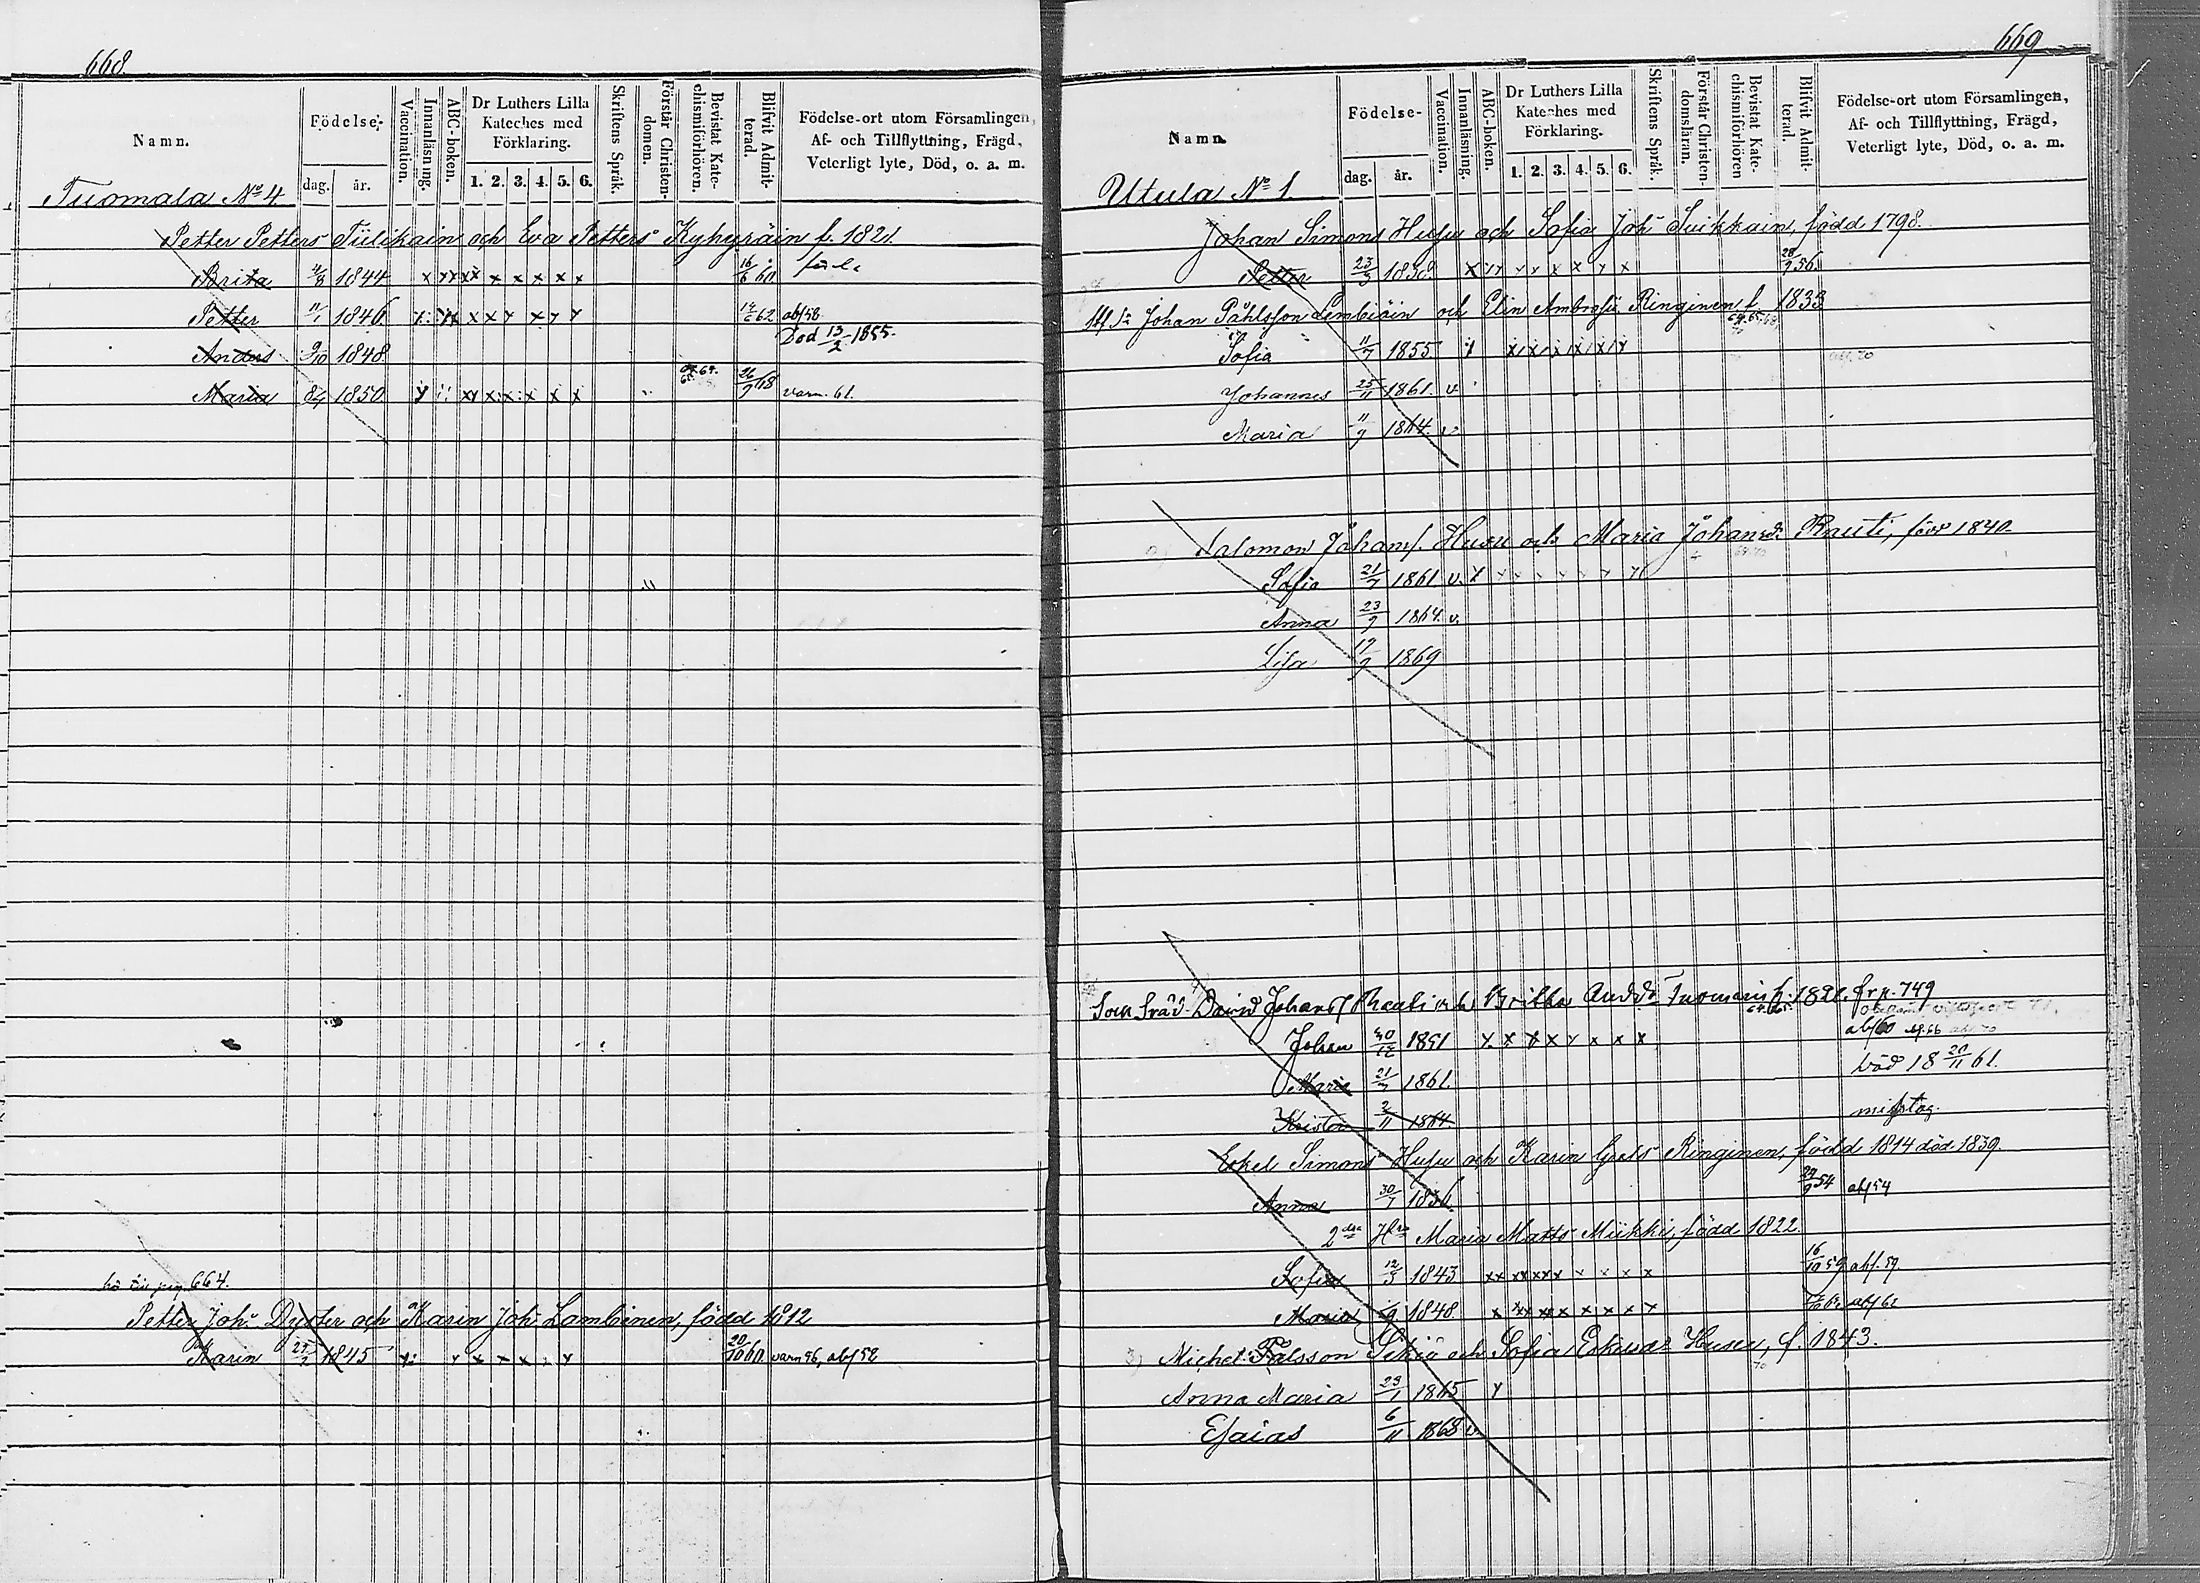 668
Namn.
Födelse-
dag. år.
Vaccination.
Innanläsning.
ABC-boken.
Dr Luthers Lilla Kateches med Förklaring.
1. 2. 3. 4. 5. 6.
Skriftens Språk.
Förstår Christen-domen.
Bevistat Kate-chismiförhören.
Blifvit Admit-terad.
Födelse-ort utom Församlingen, Af- och Tillflyttning, Frägd, Veterligt lyte, Död, o. a. m.
Tuomala No 4
Petter Petters Tiilikain och Eva Petters Kyhyräin f. 1821.
Brita 1844 x x x x x x x 16/6 60
Petter 11/1 1846 x x x x x x 62 abs 58
Död 13/2 1855.
Anders 9/10 1848
Maria 1850 x x x x x x x 26/9 68 varn. 61.
pag. 664.
Petter Joh. Dyster och Karin Joh. Lambinen, född 1812
Karin 1845 x x x x x 20/10 60 varn 56, abs 58
669
Namn.
Födelse-
dag. år.
Vaccination.
Innanläsning.
ABC-boken.
Dr Luthers Lilla Kateches med Förklaring.
1. 2. 3. 4. 5. 6.
Skriftens Språk.
Förstår Christen-domsläran.
Bevistat Kate-chismiförhören
Blifvit Admit-terad.
Födelse-ort utom Församlingen, Af- och Tillflyttning, Frägd, Veterligt lyte, Död, o. a. m.
Utula No 1.
Johan Simons Husu och Sofia Joh. Suikkain, född 1798.
Petter 23/3 1838 x x x x x x x 28/9 56.
Johan Påhlsson Lembiäin och Elin Ambrosii Ringinen f. 1833
Sofia 11/7 1855 x x x x x x x
Johannes 25/11 1861. v.
Maria 11/9 1864. v.
Salomon Johans. Husu och Maria Johansd. Rauti, född 1840.
Sofia 21/7 1861 v. x x x x x x x
Anna 23/9 1864. v.
Lisa 17/9 1869
David Johans Rauti och Britha Andsd. Tuomain f. 1821. fr p. 749
Johan 30/12 1851 x x x x x x x x
Maria 21/7 1861. död 18 20/11 61.
Kristan 2/11 1864 misstag.
Eskel Simons Husu och Karin Ringinen, född 1814 död 1839.
Anna 30/7 1836. 29/9 54 abs 54
2dra Hru Maria Matts Miikki, född 1822.
Sofia 12/3 1843 x x x x x x x x x 16/10 59 abs. 59
Maria 1848. x x x x x x x x abs 62
3) Michel Palsson Sikiö och Sofia Eskelsdr Husu, f. 1843.
Anna Maria 29/1 1865 x
Esaias 6/11 1868 v.